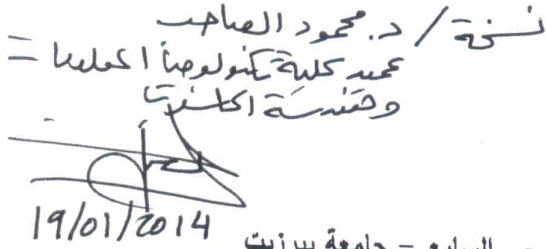 نسخة / د. محمود الصاحب
عميد كلية تكنولوجيا المعلومات
وهندسة الحاسوب
19/01/2014
السابع - جامعة بيرزيت